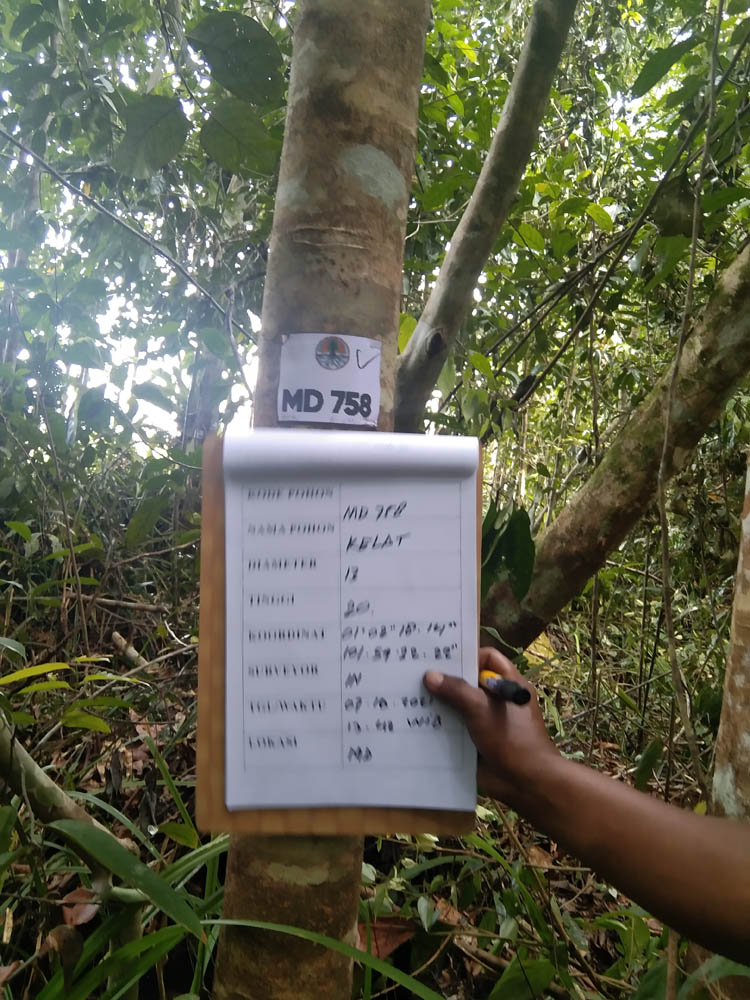 MD 758
KODE POHON MD 758
NAMA POHON KELAT
DIAMETER 13
TINGGI 20
KOORDINAT 01° 02" 18. 14"
101. 59 22. 22"
SURVEYOR IN
TGL/WAKTU
WIB
LOKASI MD